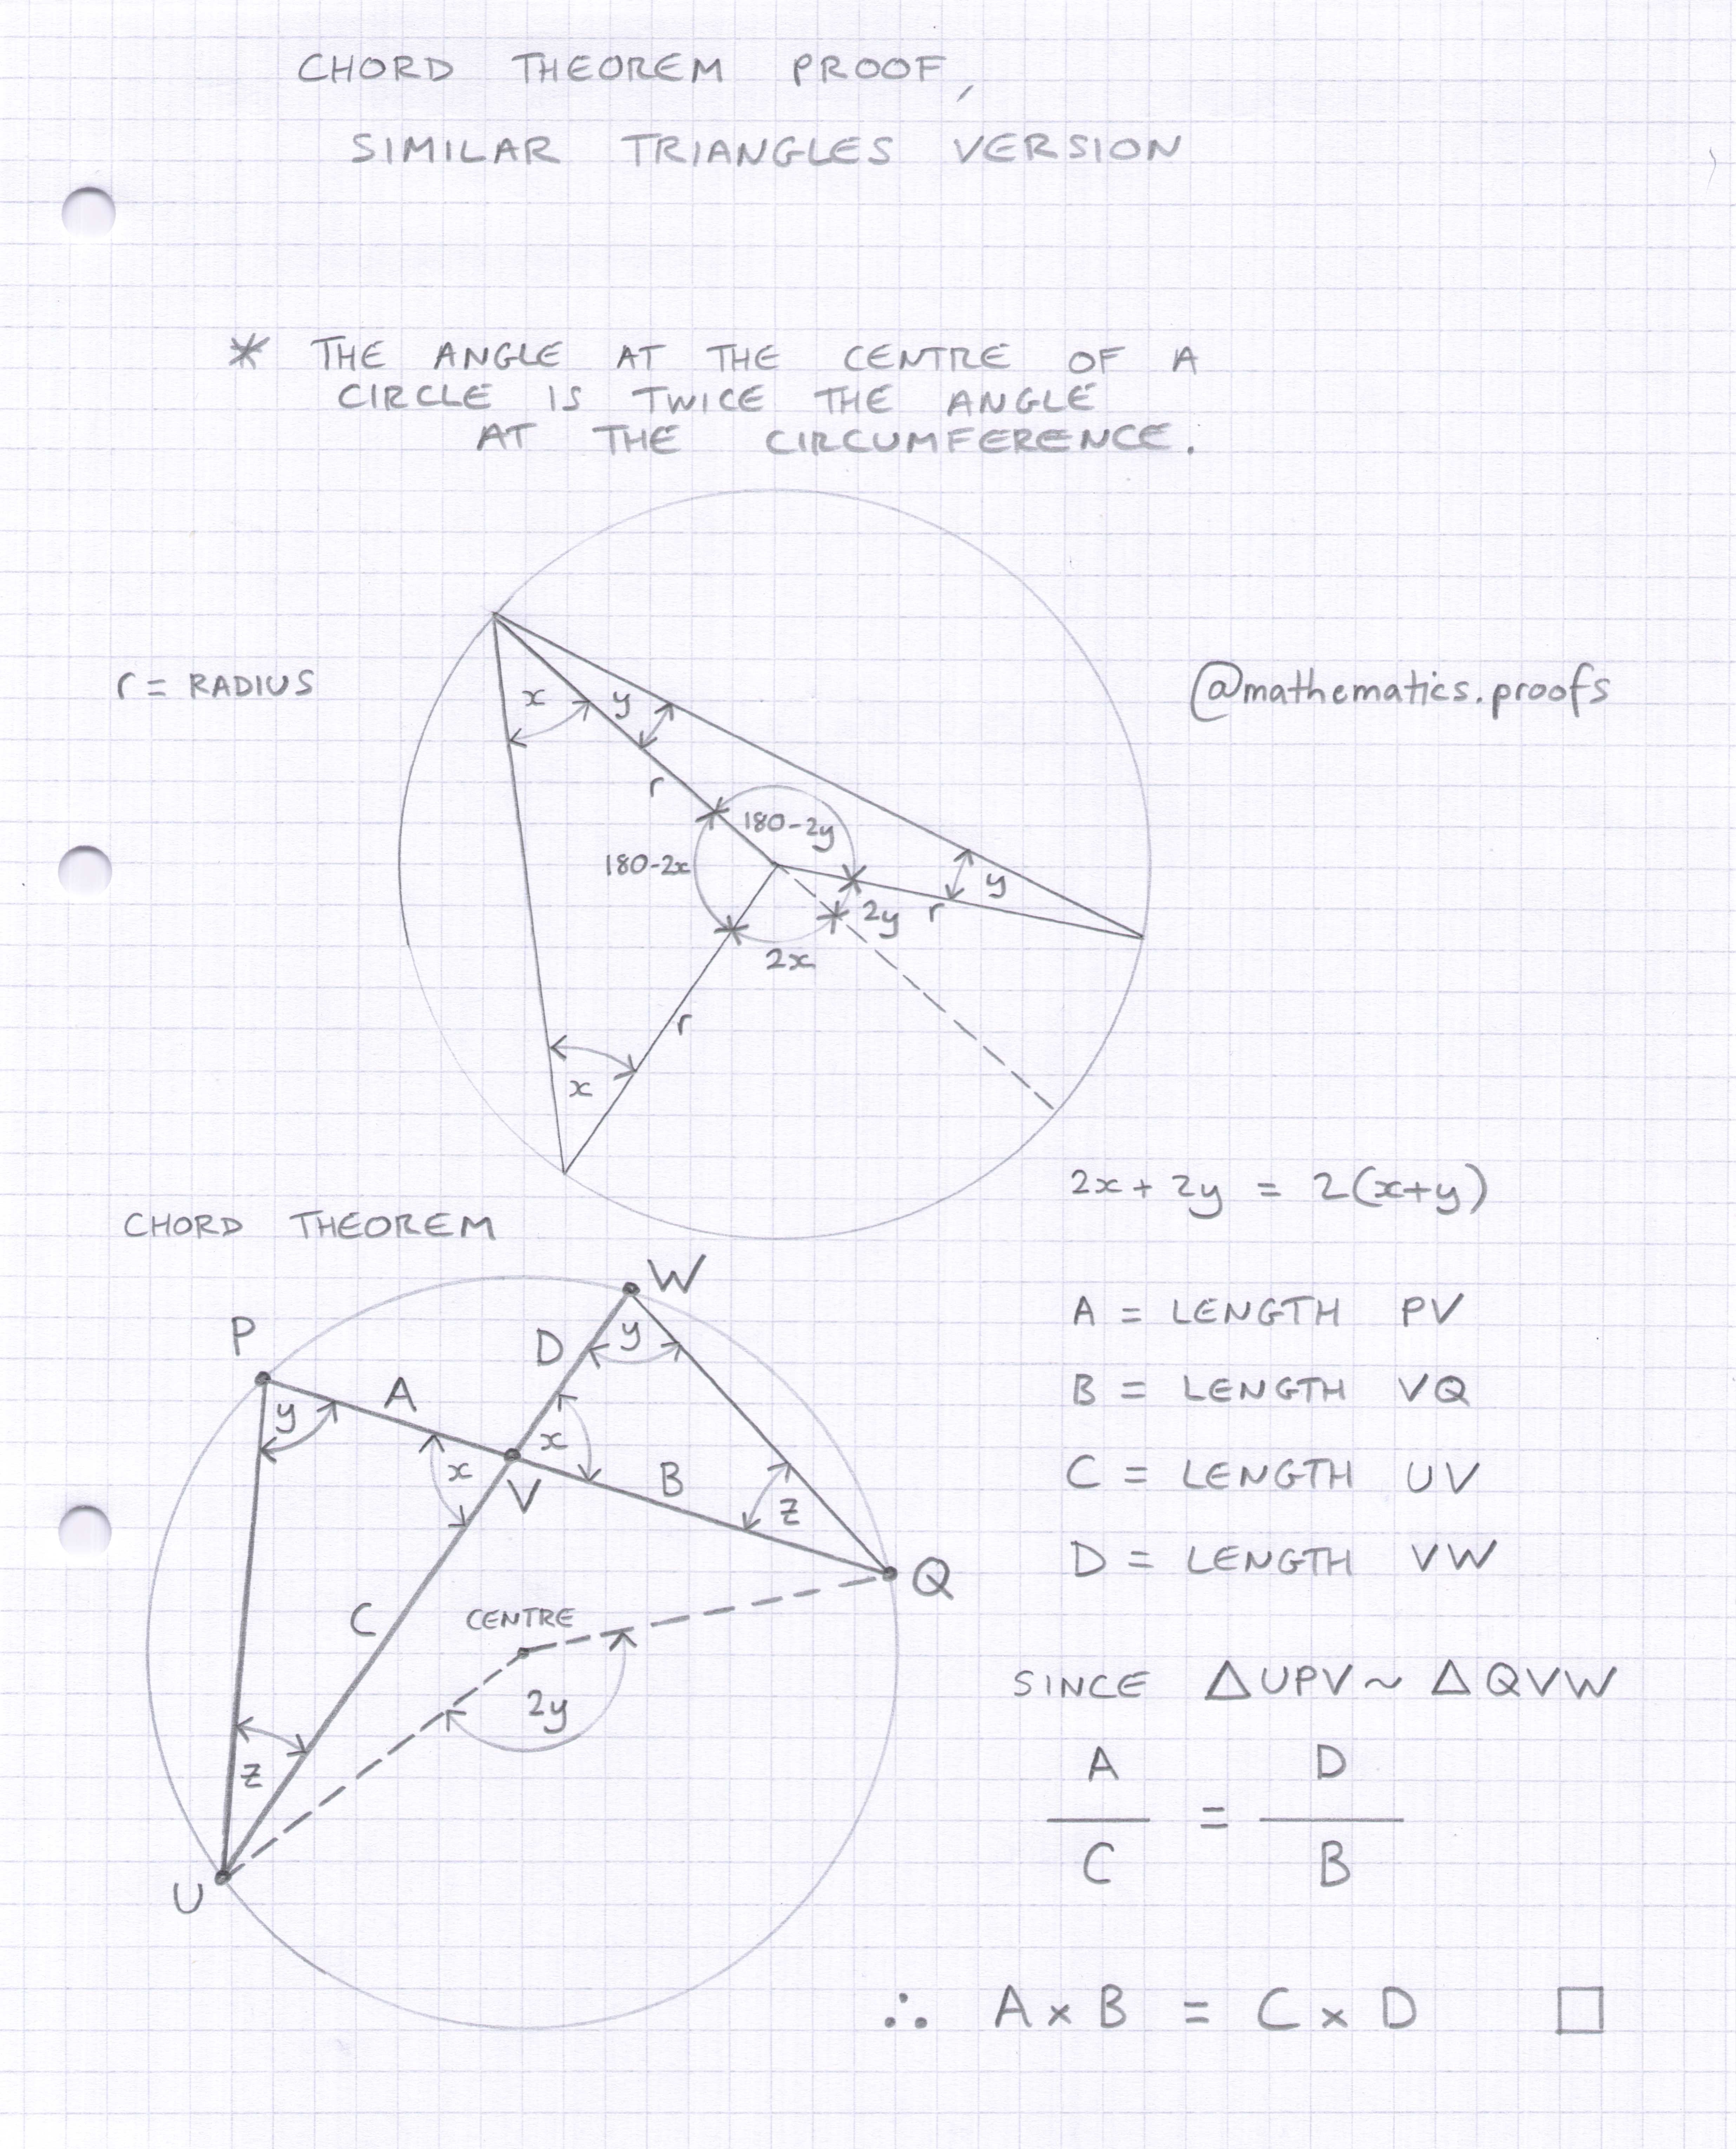 CHORD THEOREM PROOF,
SIMILAR TRIANGLES VERSION
* THE ANGLE AT THE CENTRE OF A
CIRCLE IS TWICE THE ANGLE
AT THE CIRCUMFERENCE.
r = RADIUS
@mathematics.proofs
x
y
r
180-2y
180-2x
y
2y
r
2x
r
x
2x + 2y = 2(x+y)
CHORD THEOREM
W
P
D
y
A
y
x
x
V
B
z
Q
C
CENTRE
2y
z
U
A = LENGTH PV
B = LENGTH VQ
C = LENGTH UV
D = LENGTH VW
SINCE △UPV ~ △QVW
A D
= 
C B
∴ A × B = C × D □